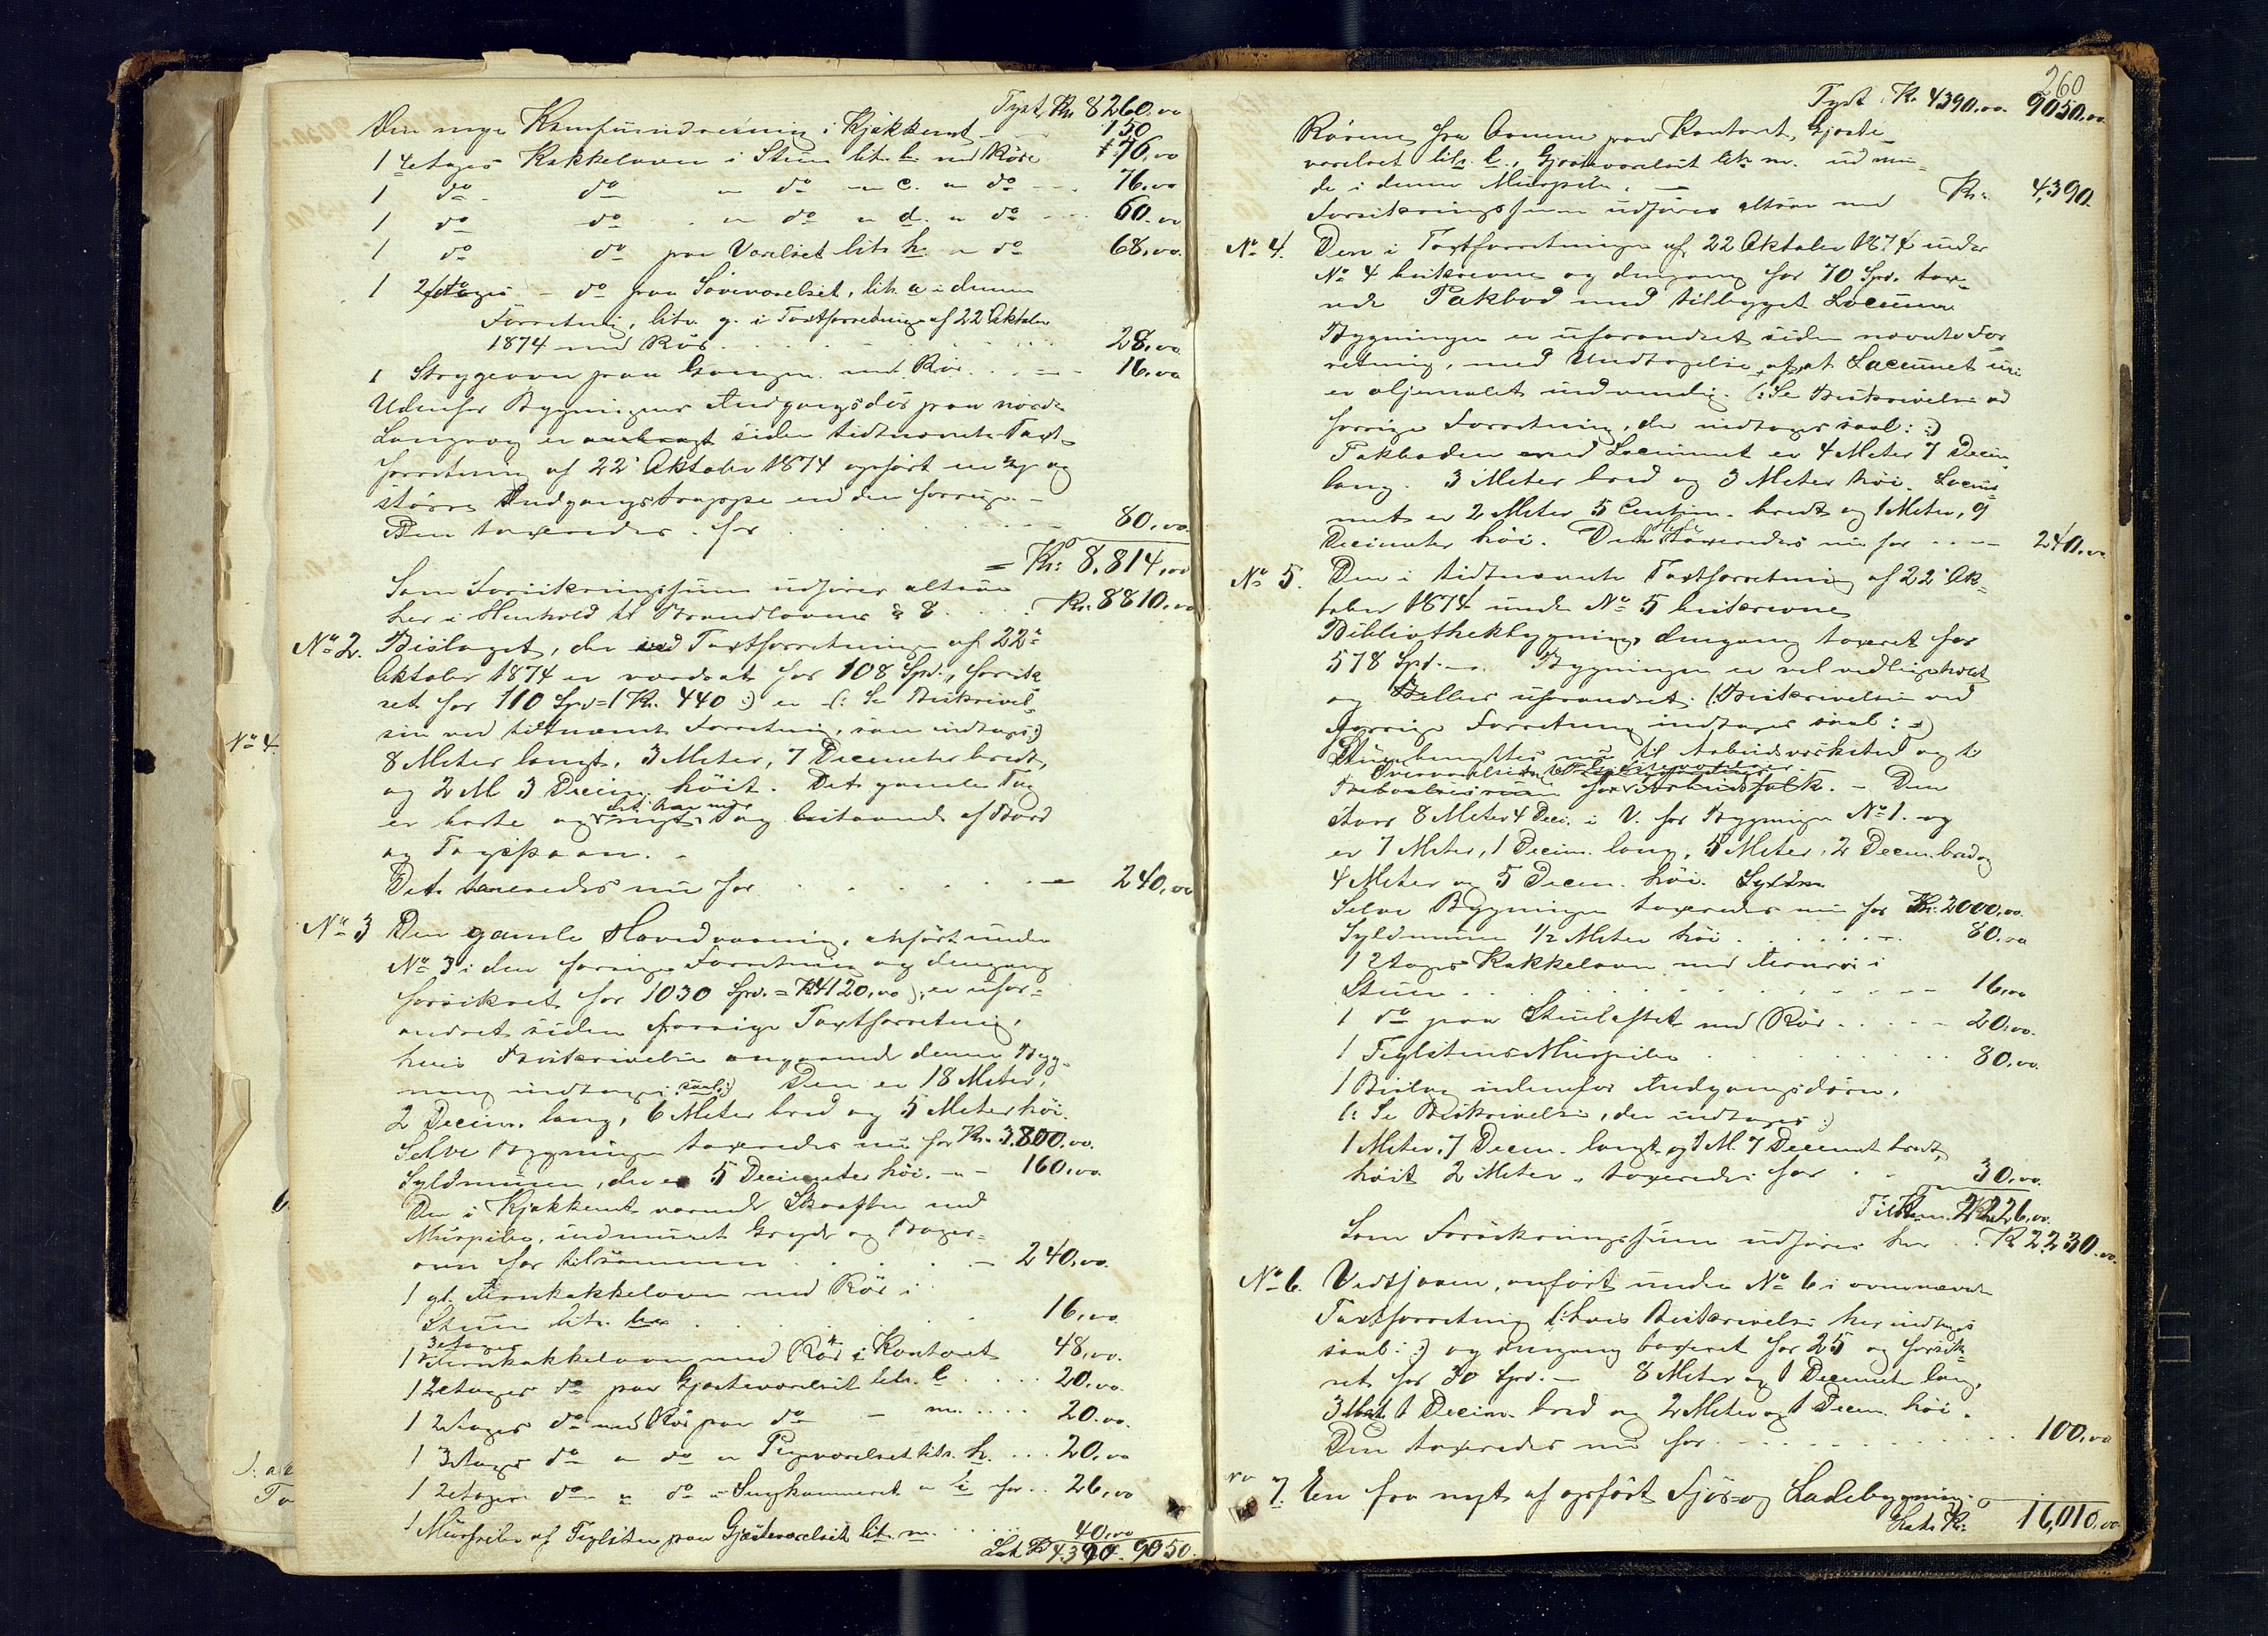 Tpst. Kr. 8260,00
Den nye Komfurindretning i Kjøkkenet 150
1 4 etages Kakkelovn i Stuen litr. b. med Rör 76,00
1 do do " do " c. " do 76,00
1 do do " do " d. " do 60,00
1 do do paa Værelset litr. h. " do 68,00
1 2 etages do paa Soveværelset, litr. a i denne
Forretning, litr. g. i Taxtforretning af 22 Oktober
1874 med Rör 28,00
1 Strygeovn paa Gangen med Rör 16,00
Udenfor Bygningens Indgangsdör paa nordre
Langvæg er siden tidtnævnte Taxt-
forretning af 22' Oktober 1874 opfört en ny og
större Indgangstrappe end den forrige. -
Den taxeredes for 80,00
= Kr: 8,814,00
Som Forsikringssum udföres altsaa
her i Henhold til Brandlovens § 8 Kr. 8810,00
No 2. Bislaget, der ved Taxtforretningen af 22'
Oktober 1874 er værdsat for 108 Spd., forsik-
ret for 110 Spd = (Kr. 440 :) er (: Se Beskrivel-
sen ved tidtnævnte Forretning, som indtages :)
8 Meter langt, 3 Meter, 7 Decimeter bredt,
og 2 M 3 Decim. höit. Det gamle Tag
er borte og det har nu nyt Tag bestaaende af Bord
og Tagspaan.
Det taxeredes nu for 240,00
No 3 Den gamle Hovedvaaning, anfört under
No 3 i den forrige Forretning og dengang
forsikret for 1030 Spd. = Kr 4120,00), er ufor-
andret siden forrige Taxtforretning,
hvis Beskrivelse angaaende denne Byg-
ning indtages saal: :) Den er 18 Meter,
2 Decim. lang, 6 Meter bred og 5 Meter höi.
Selve Bygningen taxeredes nu for Kr. 3.800.00.
Syldmuren, der er 5 Decimeter höi. - " - 160,00
Den i Kjøkkenet værende Skorsten med
Murpibe, indmuret Gryde og Bager-
ovn for tilsammen 240,00.
1 gl. Jernkakkelovn med Rör i
Stuen litr. 16,00
1 3etages Jernkakkelovn med Rör i Kontoret 48,00.
1 2etages do paa Gjæsteværelset litr. l 20,00.
1 2etages do med Rör paa do - m. 20.00.
1 3etages do " do " Pigeværelset litr. h. 20,00
1 2etages do " do " Sengkammeret " i for 26,00
1 Murpibe af Teglsten paa Gjæsteværelset lit. m. 40,00
Lat. Kr 4.390. 9050.
260
Tpst. Kr. 4390,00. 9050,00
Rörene fra Ovnene paa Kontoret, Gjæste-
værelset litr. l., Gjæsteværelset litr. m. udmun-
de i denne Murpibe. -
Forsikringssum udföres altsaa med Kr. 4,390.
No 4. Den i Taxtforretningen af 22 Oktober 1874 under
No 4 beskrevne og dengang for 70 Spd. taxe-
rede Pakbod med tilbygget Locum.
Bygningen er uforandret siden nævnte For-
retning, med Undtagelse af, at Locumet nu
er oljemalet indvendig. (: Se Beskrivelse ved
forrige Forretning, der indtages saal: :)
Pakboden med Locumet er 4 Meter 7 Decim
lang. 3 Meter bred og 3 Meter höi. Locu-
met er 2 Meter 5 Centim. bredt og 1 Meter, 9
Decimeter höi. Det Hele taxeredes nu for 240,00
No 5. Den i tidtnævnte Taxtforretning af 22' Ok-
tober 1874 under No 5 beskrevne
Bibliothekbygning, dengang taxeret for
578 Spd. -. Bygningen er vel vedligeholdt
og ellers uforandret. (Beskrivelsen ved
forrige Forretning indtages saal: :)
Stuen benyttes nu til Arbeidsværksted og til
for Arbeidsfolk. - Den
staar 8 Meter 4 Deci. i V. for Bygningen No 1. og
er 7 Meter, 1 Decim. lang, 5 Meter, 2 Decim. bred og
4 Meter og 5 Decim. höi. Syldm
Selve Bygningen taxeredes nu for Kr. 2000,00.
Syldmuren 1/2 Meter höi 80.00
1 2etages Kakkelovn med Jernrör i
Stuen 16,00
1 do paa Stueloftet med Rör 20,00.
1 Teglstens Murpibe 80,00.
1 Bislag udenfor Indgangsdören.
(: Se Beskrivelse, der indtages :)
1 Meter, 7 Decim. langt og 1 M. 7 Decimet bredt,
höit 2 Meter, taxeredes for 30,00.
Tilsam. Kr. 2226,00.
Som Forsikringssum udföres her Kr 2230.00.
No 6. Vedskjaaen, anfört under No 6 i ovennævnte
Taxtforretning (: hvis Beskrivelse her indtages
saal: :) og dengang taxeret for 25 og forsik-
ret for 30 Spd. - 8 Meter og 1 Decimeter lang,
3 Met 1 Decim. bred og 2 Meter og 1 Decim. höi.
Den taxeredes nu for 100,00
No 7. En fra nyt af opfört Fjös- og Ladebygning
Lat. Kr: 16,010,00